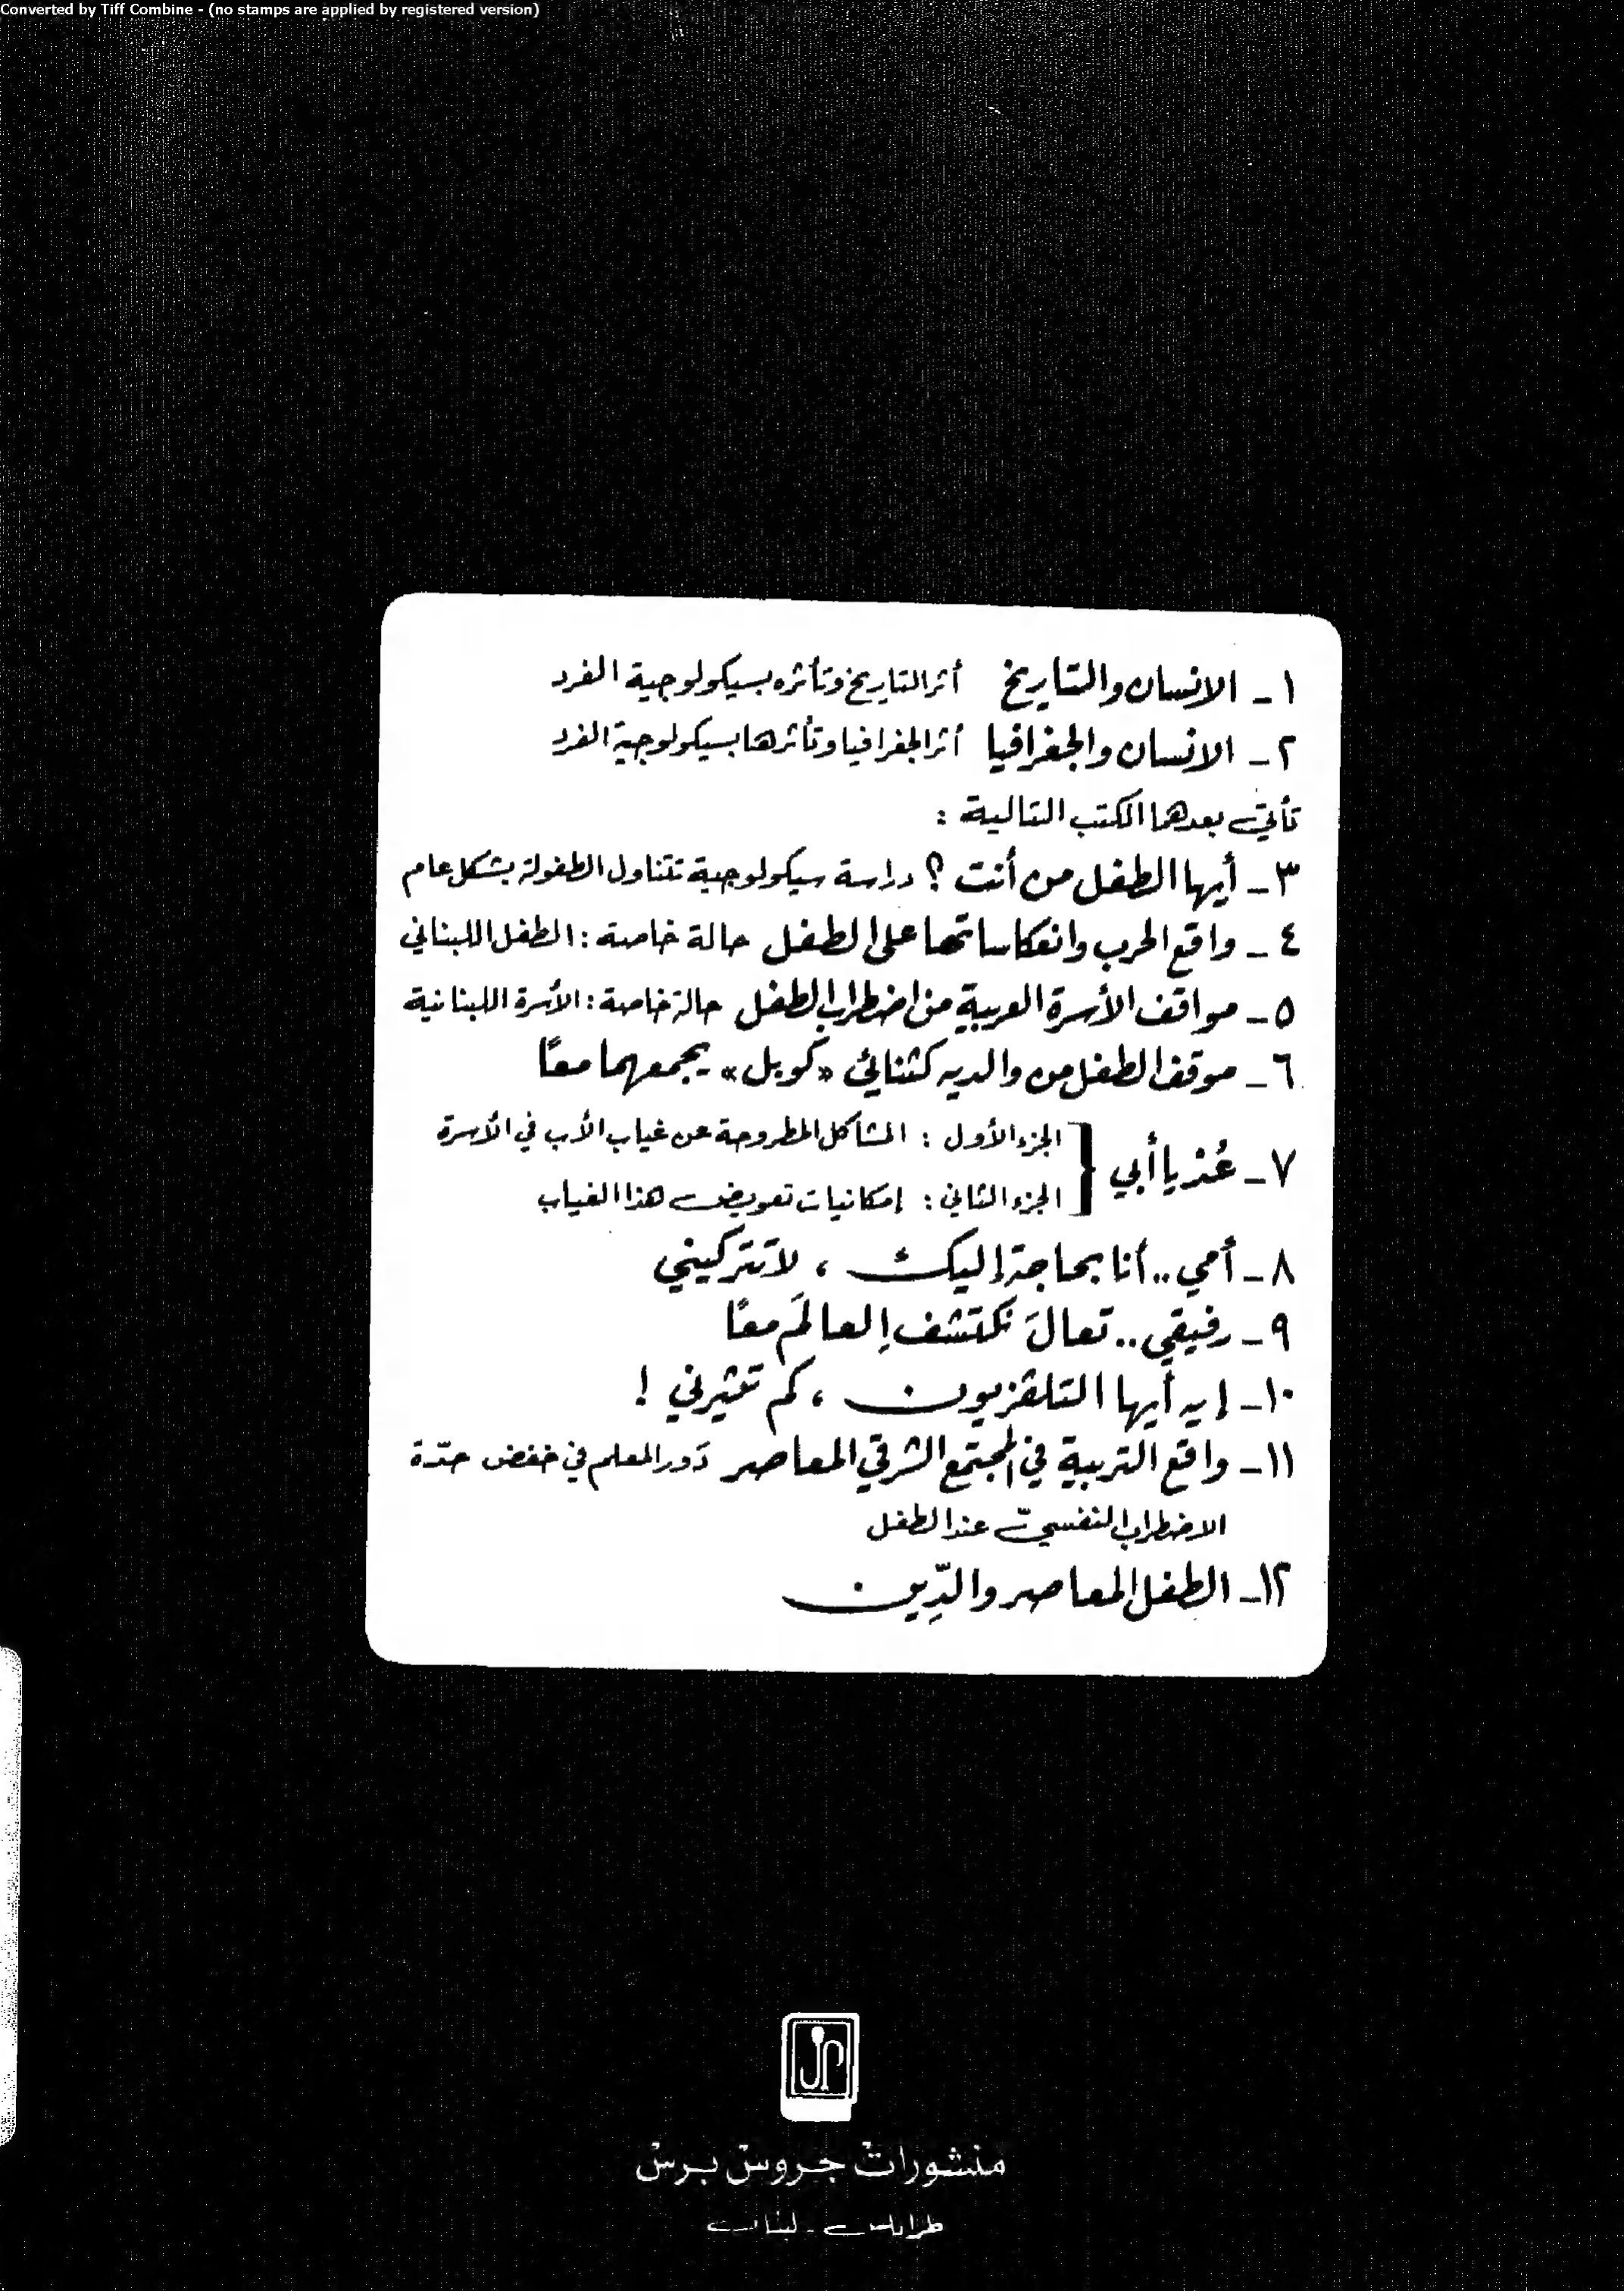 Converted by Tiff Combine - (no stamps are applied by registered version)
١ـ الانسان والتاريخ أثر التاريخ وتأثره بسيكولوجية الفرد
٢ـ الانسان والجغرافيا أثر الجغرافيا وتأثرها بسيكولوجية الفرد
تأتي بعدهما الكتب التالية :
٣ـ أيها الطفل من أنت ؟ دراسة سيكولوجية تتناول الطفولة بشكل عام
٤ـ واقع الحرب وانعكاساتها على الطفل حالة خاصة : الطفل اللبناني
٥ـ مواقف الأسرة العربية من اضطراب الطفل حالة خاصة : الأسرة اللبنانية
٦ـ موقف الطفل من والديه كثنائي «كوبل» يجمعهما معًا
٧ـ عُد يا أبي { الجزء الأول : المشاكل المطروحة عن غياب الأب في الأسرة
الجزء الثاني : إمكانيات تعويض هذا الغياب
٨ـ أمي .. أنا بحاجة إليك ، لا تتركيني
٩ـ رفيقي .. تعالَ نكتشفِ العالَم معًا
١٠ـ إيه أيها التلفزيون ، كم تثيرني !
١١ـ واقع التربية في المجتمع الشرقي المعاصر دَور المعلم في خفض حدّة
الاضطراب النفسيّ عند الطفل
١٢ـ الطفل المعاصر والدّين
منشورات جروس برس
طرابلس - لبنان